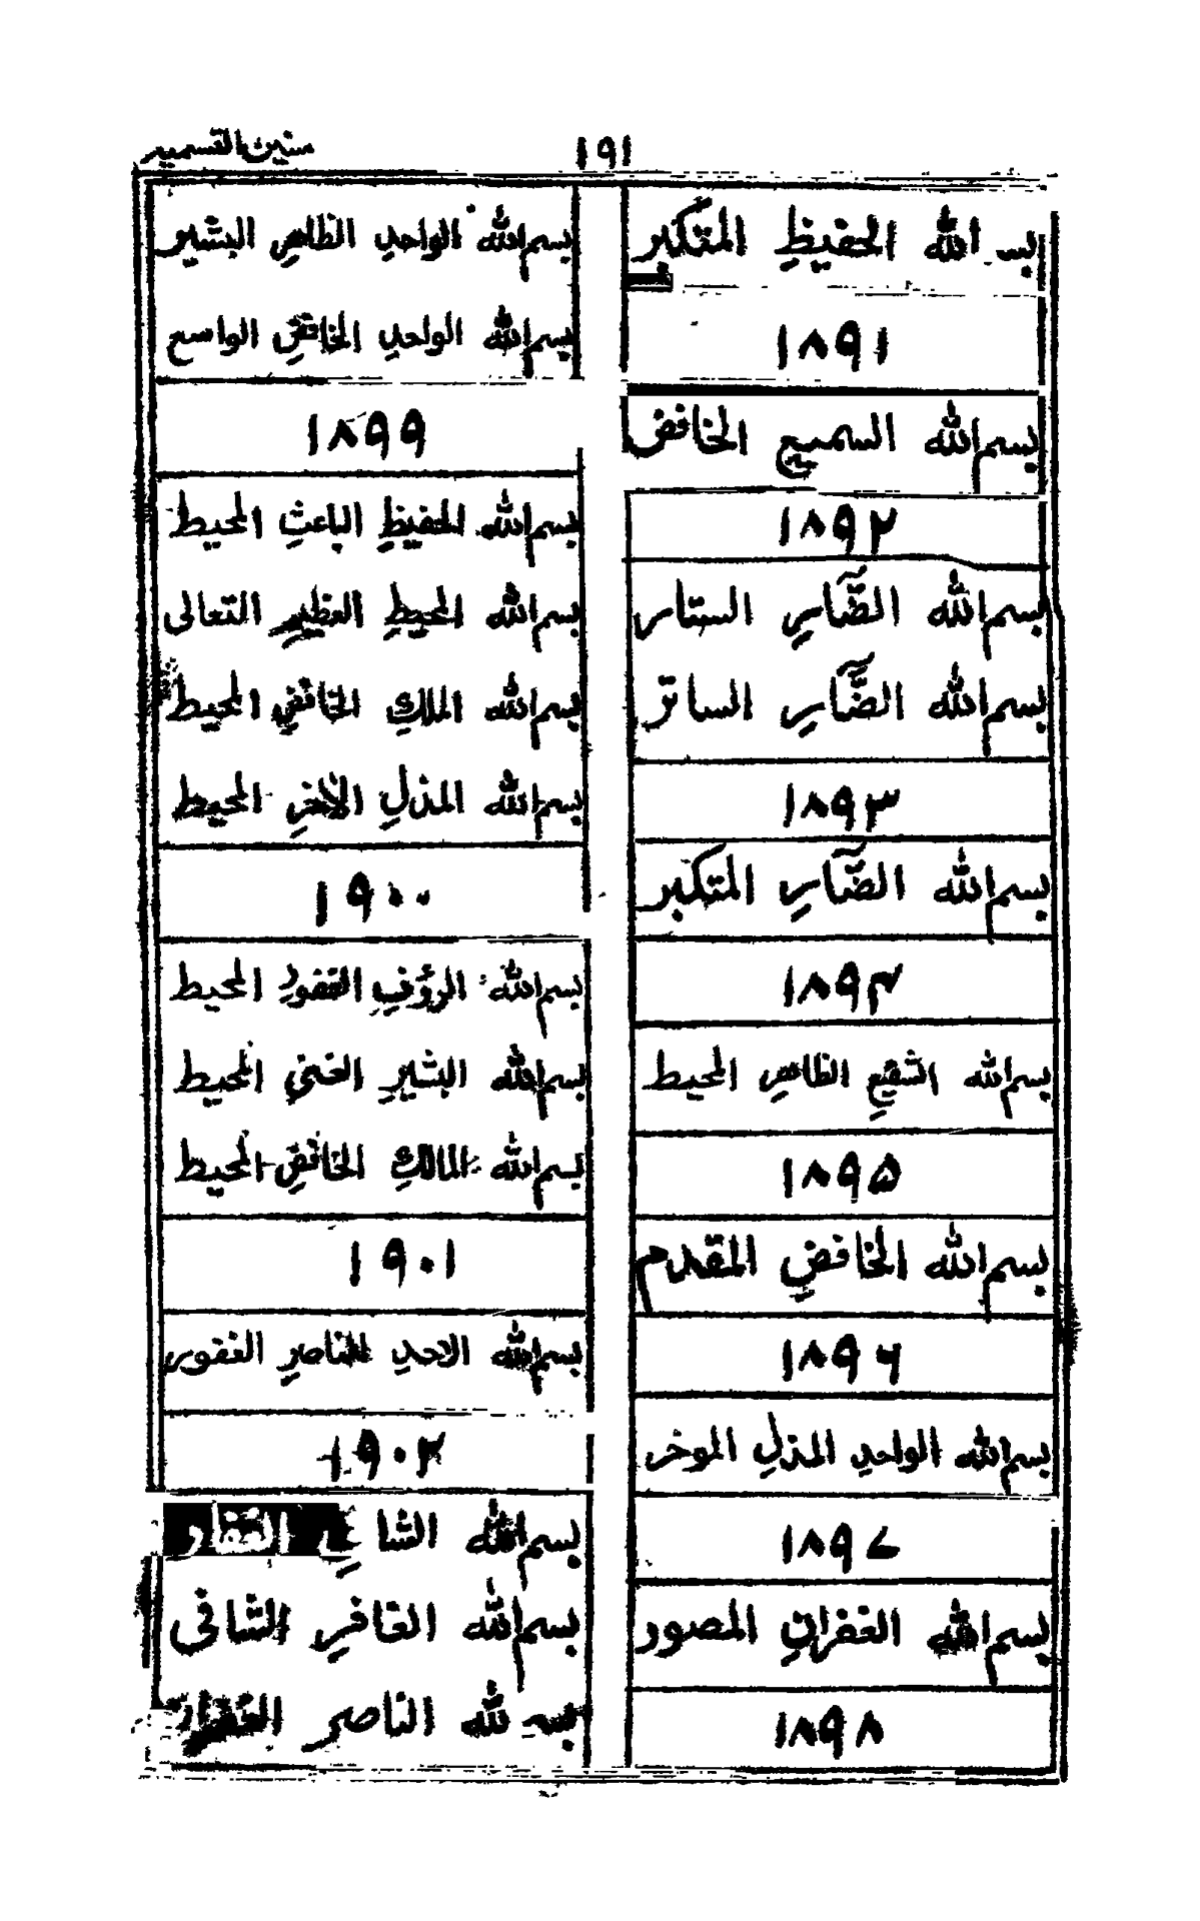 ١٩١
سنين القسمير
بسم الله الحفيظ المتكبر
١٨٩١
بسم الله السميع الخافض
١٨٩٢
بسم الله الضّار الستار
بسم الله الضّار الساتر
١٨٩٣
بسم الله الضّار المتكبر
١٨٩۴
بسم الله الشفيع الظاهر المحيط
١٨٩۵
بسم الله الخافض المقدم
١٨٩۶
بسم الله الواحد المذل الموخر
١٨٩٧
بسم الله الغفران المصور
١٨٩٨
بسم الله الواحد الظاهر البشير
بسم الله الواحد الخافض الواسع
١٨٩٩
بسم الله الحفيظ الباعث المحيط
بسم الله المحيط العظيم التعالى
بسم الله الملك الخافض المحيط
بسم الله المذل الآخر المحيط
١٩٠٠
بسم الله الرؤف الغفور المحيط
بسم الله البشير الغنى المحيط
بسم الله المالك الخافض المحيط
١٩٠١
بسم الله الاحد الناصر الغفور
١٩٠٢
بسم الله
بسم الله الغافر الشافى
بسم الله الناصر